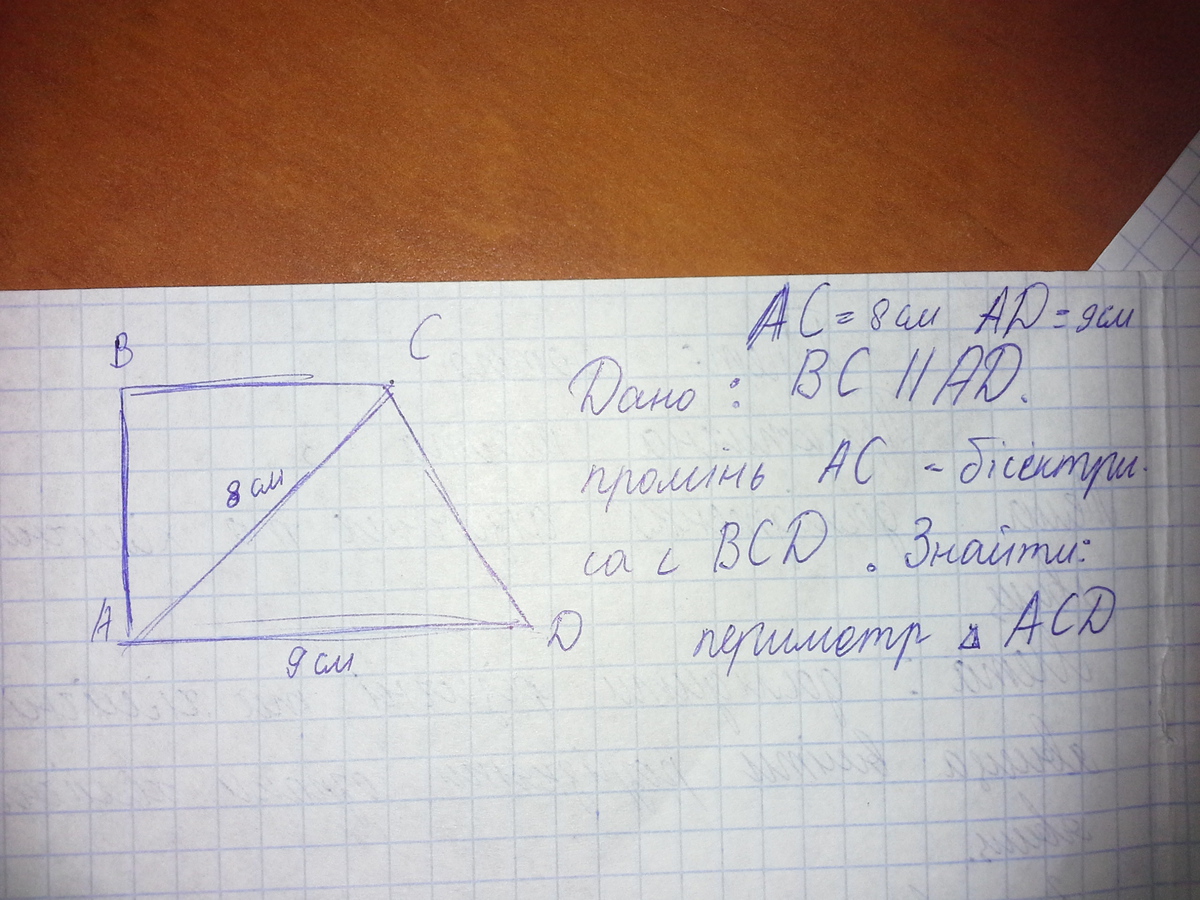 B
C
8 см
A
D
9 см
AC = 8 см AD = 9см
Дано : BC || AD.
промінь AC - бісектри-
са ∠ BCD . Знайти:
периметр △ ACD